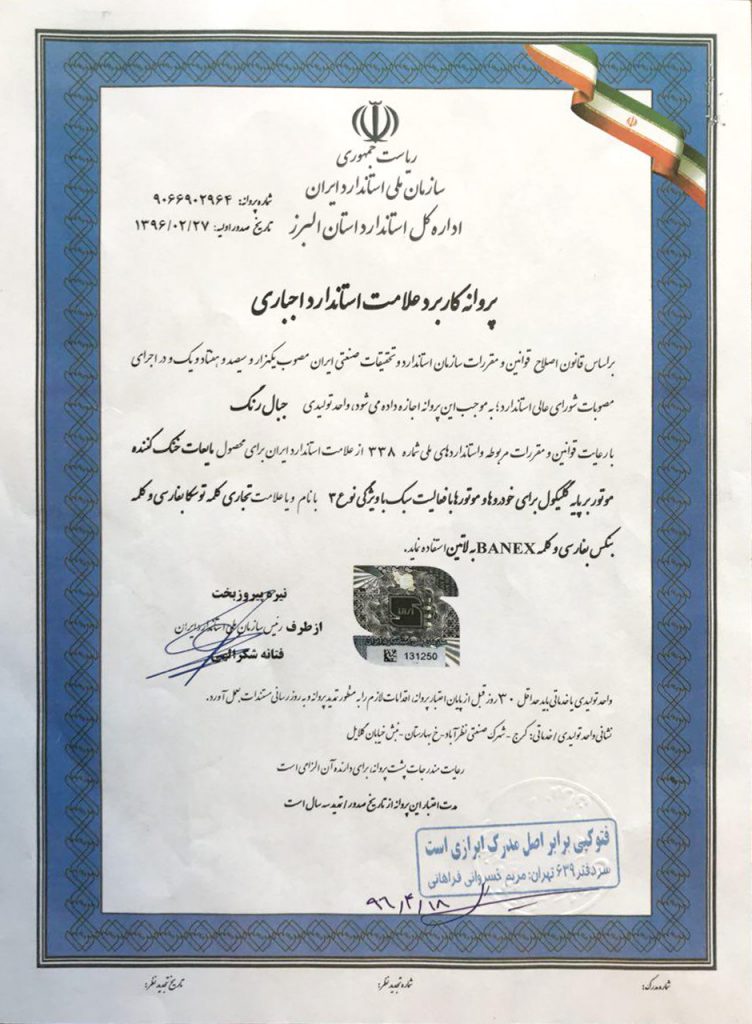 ریاست جمهوری
سازمان ملی استاندارد ایران
اداره کل استاندارد استان البرز
شماره پروانه: ۹۰۶۶۹۰۲۹۶۴
تاریخ صدور اولیه: ۱۳۹۶/۰۲/۲۷
پروانه کاربرد علامت استاندارد اجباری
براساس قانون اصلاح قوانین و مقررات سازمان استاندارد و تحقیقات صنعتی ایران مصوب یکهزار و سیصد و هفتاد و یک و در اجرای
مصوبات شورای عالی استاندارد؛ به موجب این پروانه اجازه داده می شود، واحد تولیدی جبال رنگ
با رعایت قوانین و مقررات مربوطه و استانداردهای ملی شماره ۳۳۸ از علامت استاندارد ایران برای محصول مایعات خنک کننده
موتور بر پایه گلیکول برای خودروها و موتورها با فعالیت سبک با ویژگی نوع ۳ با نام و یا علامت تجاری کلمه توسکا بفارسی و کلمه
بنکس بفارسی و کلمه BANEX به لاتین استفاده نماید.
نیره پیروزبخت
از طرف رئیس سازمان ملی استاندارد ایران
فتانه شکرالهی
131250
واحد تولیدی یا خدماتی باید حداقل ۳۰ روز قبل از پایان اعتبار پروانه، اقدامات لازم را به منظور تمدید پروانه و به روز رسانی مستندات بعمل آورد.
نشانی واحد تولیدی / خدماتی: کرج - شهرک صنعتی نظرآباد - خ بهارستان - نبش خیابان گلایل
رعایت مندرجات پشت پروانه، برای دارنده آن الزامی است
مدت اعتبار این پروانه از تاریخ صدور / تمدید سه سال است
فتوکپی برابر اصل مدرک ابرازی است
سردفتر ۶۳۹ تهران: مریم خسروانی فراهانی
۹۶/۴/۱۸
شماره مدرک:
شماره تجدید نظر:
تاریخ تجدید نظر: